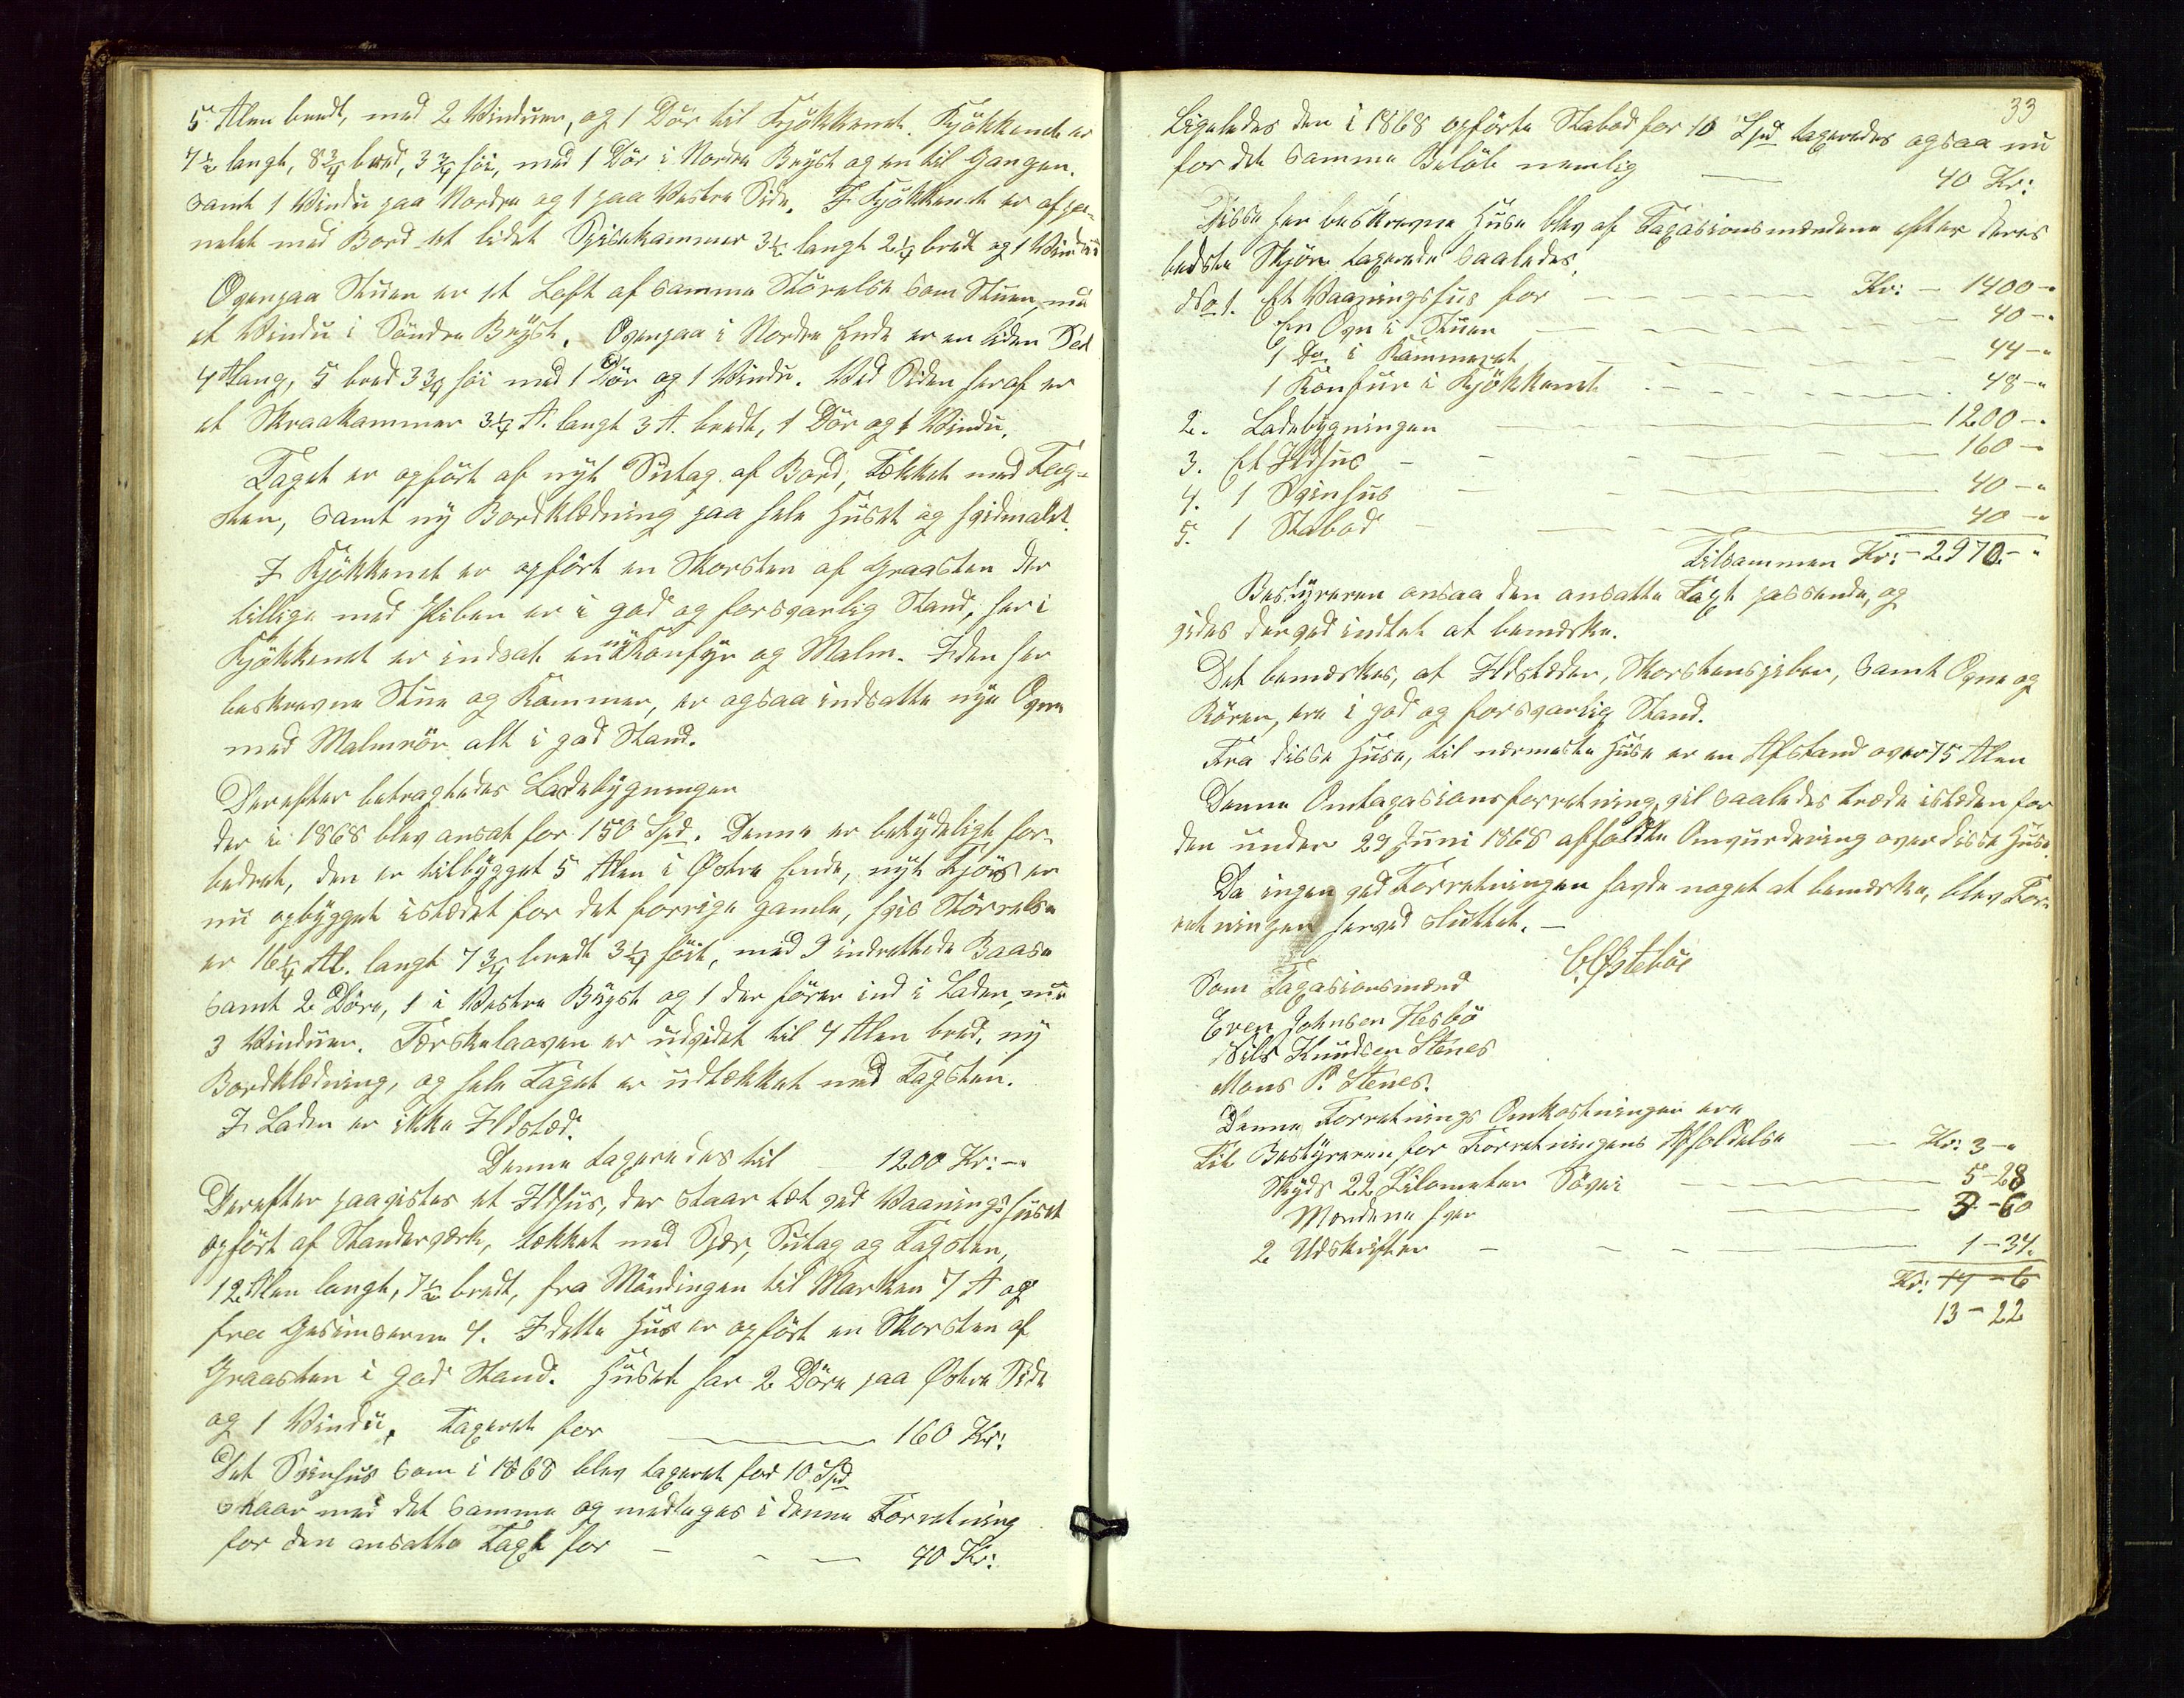 5 Alen bredt, med 2 Vinduer, og 1 Dör til Kjökkenet. Kjökkenet er
7½ langt, 8¾ bred, 3¾ höi, med 1 Dör i Nordre Bryst og en til Gangen.
samt 1 Vindu paa Nordre og 1 paa Vestre Side. I Kjökkenet er af pa-
nelet med Bord et lidet Spisekammer 3½ langt 2¼ bredt og 1 Vindu
Ovenpaa Stuen er et Loft af samme Störelse som Stuen, med
et Vindu i Söndre Bryst. Ovenpaa i Nordre Ende er en liden Sal
4 Alang, 5 bred 3¾ höi med 1 Dör og 1 Vindu. Ved Siden heraf er
et Skraakammer 3¼ A. langt 3 A. bredt, 1 Dör og 1 Vindu.
Taget er opfört af nyt Sutag af Bord, Tækket med Tag-
sten, samt ny Bordklædning paa hele Huset og hvidmalet.
I Kjökkenet er opfört en Skorsten af Graasten der
tillige med Piben er i god og forsvarlig Stand, her i
Kjökkenet er indsat en ny Komfyr og Malm. I den her
beskrevne Stue og Kammer, er ogsaa indsatte nye Ovne
med Malmrör alt i god Stand.
Derefter betragtedes Ladebygningen
der i 1868 blev ansat for 150 Spd. Denne er betydeligt for-
bedret, den er tilbygget 5 Alen i Østre Ende, nyt Fjös er
nu opbygget istædet for det forrige gamle, hvis Störrelse
er 16¼ Al. langt 7¾ bredt 3¼ höit, med 9 indrettede Baase
samt 2 Döre, 1 i Vestre Bryst og 1 der förer ind i Laden, med
3 Vinduer. Tærskelaaven er udvidet til 4 Alen bred, ny
Bordklædning, og hele Taget er udtækket med Tagsten.
I Laden er ikke Ildsted.
Denne taxeredes til - 1200 Kr: -"
Derefter paavistes et Ildhus, der staar tæt ved Vaaningshuset
opfört af Standerværk, tækket med Spær, Sutag og Tagsten,
12 Alen langt, 7½ bredt, fra Möndingen til Marken 7 A og
fra Gesimserne 4. I dette Hus er opfört en Skorsten af
Graasten i god Stand. Huset har 2 Döre paa Østre Side
og 1 Vindu, taxeret for — 160 Kr:
Det Svinhus som i 1868 blev taxeret for 10 Spd
staar med det samme og medtages i denne Forretning
for den ansatte Taxt for - - — 40 Kr:
33
Ligeledes den i 1868 opförte Stabod for 10 Spd taxeredes ogsaa nu
for det samme Belöb nemlig — 40 Kr:
Disse her beskrevne Huse blev af Taxasionsmændene efter deres
bedste Skjön taxerede saaledes.
No 1. Et Vaaningshus for — Kr: - 1400 -"
En Ovn i Stuen — 40 -"
1 Do i Kammeret — 44 -"
1 Komfur i Kjökkenet — 48 -"
2. Ladebygningen — 1200 -"
3. Et Ildhus — 160 -
4. 1 Svinhus — 40 -"
5. 1 Stabod — 40 -"
Tilsammen Kr: - 2970 - "
Bestyreren ansaa den ansatte Taxt passende, og
vides derved indtet at bemærke.
Det bemærkes, at Ildstæder, Skorstenspiber, samt Ovne og
Rören, ere i god og forsvarlig Stand.
Fra disse Huse, til nærmeste Huse er en Afstand over 75 Alen
Denne Omtaxasionsforretning vil saaledes træde istæden for
den under 29 Juni 1868 afholdte Omvurdering over disse Huse.
Da ingen ved Forretningen havde noget at bemærke, blev For-
retningen herved sluttet. —
C. Østeböe
Som Taxasionsmænd
Even Johnsen Hesbö
Nils Knudsen Stenes
Mons P. Stenes.
Denne Forretnings Omkostninger ere
Til Bestyreren for Forretningens Afholdelse — Kr: 3 -"
Skyds 22 Kilometer Søvei — 5 - 28
Mændene hver — 3 - 60
2 Udskrifter — 1 - 34
Kr: 14 - 6
13 - 22